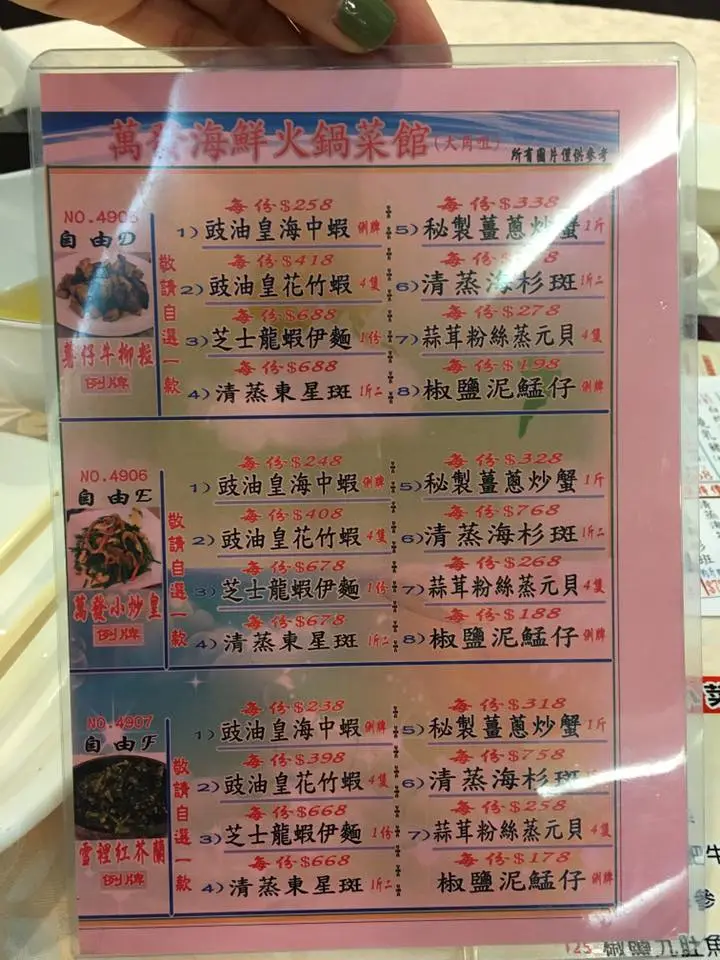 萬發海鮮火鍋菜館(大角咀)
所有圖片僅供參考
NO.4905
自由D
薯仔牛柳粒
例牌
敬請自選一款
每份$258
1) 豉油皇海中蝦 例牌
每份$418
2) 豉油皇花竹蝦 4隻
每份$688
3) 芝士龍蝦伊麵 1份
每份$688
4) 清蒸東星斑 1斤二
每份$338
5) 秘製薑蔥炒蟹 1斤
每份
6) 清蒸海杉斑 1斤二
每份$278
7) 蒜茸粉絲蒸元貝 4隻
每份$198
8) 椒鹽泥鯭仔 例牌
NO.4906
自由E
萬發小炒皇
例牌
敬請自選一款
每份$248
1) 豉油皇海中蝦 例牌
每份$408
2) 豉油皇花竹蝦 4隻
每份$678
3) 芝士龍蝦伊麵 1份
每份$678
4) 清蒸東星斑 1斤二
每份$328
5) 秘製薑蔥炒蟹 1斤
每份$768
6) 清蒸海杉斑 1斤二
每份$268
7) 蒜茸粉絲蒸元貝 4隻
每份$188
8) 椒鹽泥鯭仔 例牌
NO.4907
自由F
雪裡紅芥蘭
例牌
敬請自選一款
每份$238
1) 豉油皇海中蝦 例牌
每份$398
2) 豉油皇花竹蝦 4隻
每份$668
3) 芝士龍蝦伊麵 1份
每份$668
4) 清蒸東星斑 1斤二
每份$318
5) 秘製薑蔥炒蟹 1斤
每份$758
6) 清蒸海杉斑
每份$258
7) 蒜茸粉絲蒸元貝 4隻
每份$178
椒鹽泥鯭仔 例牌
125 椒鹽九肚魚